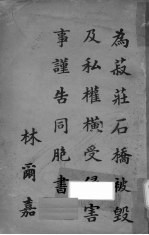 為菽莊石橋被毀
及私權橫受侵害
事謹告同胞書
林爾嘉